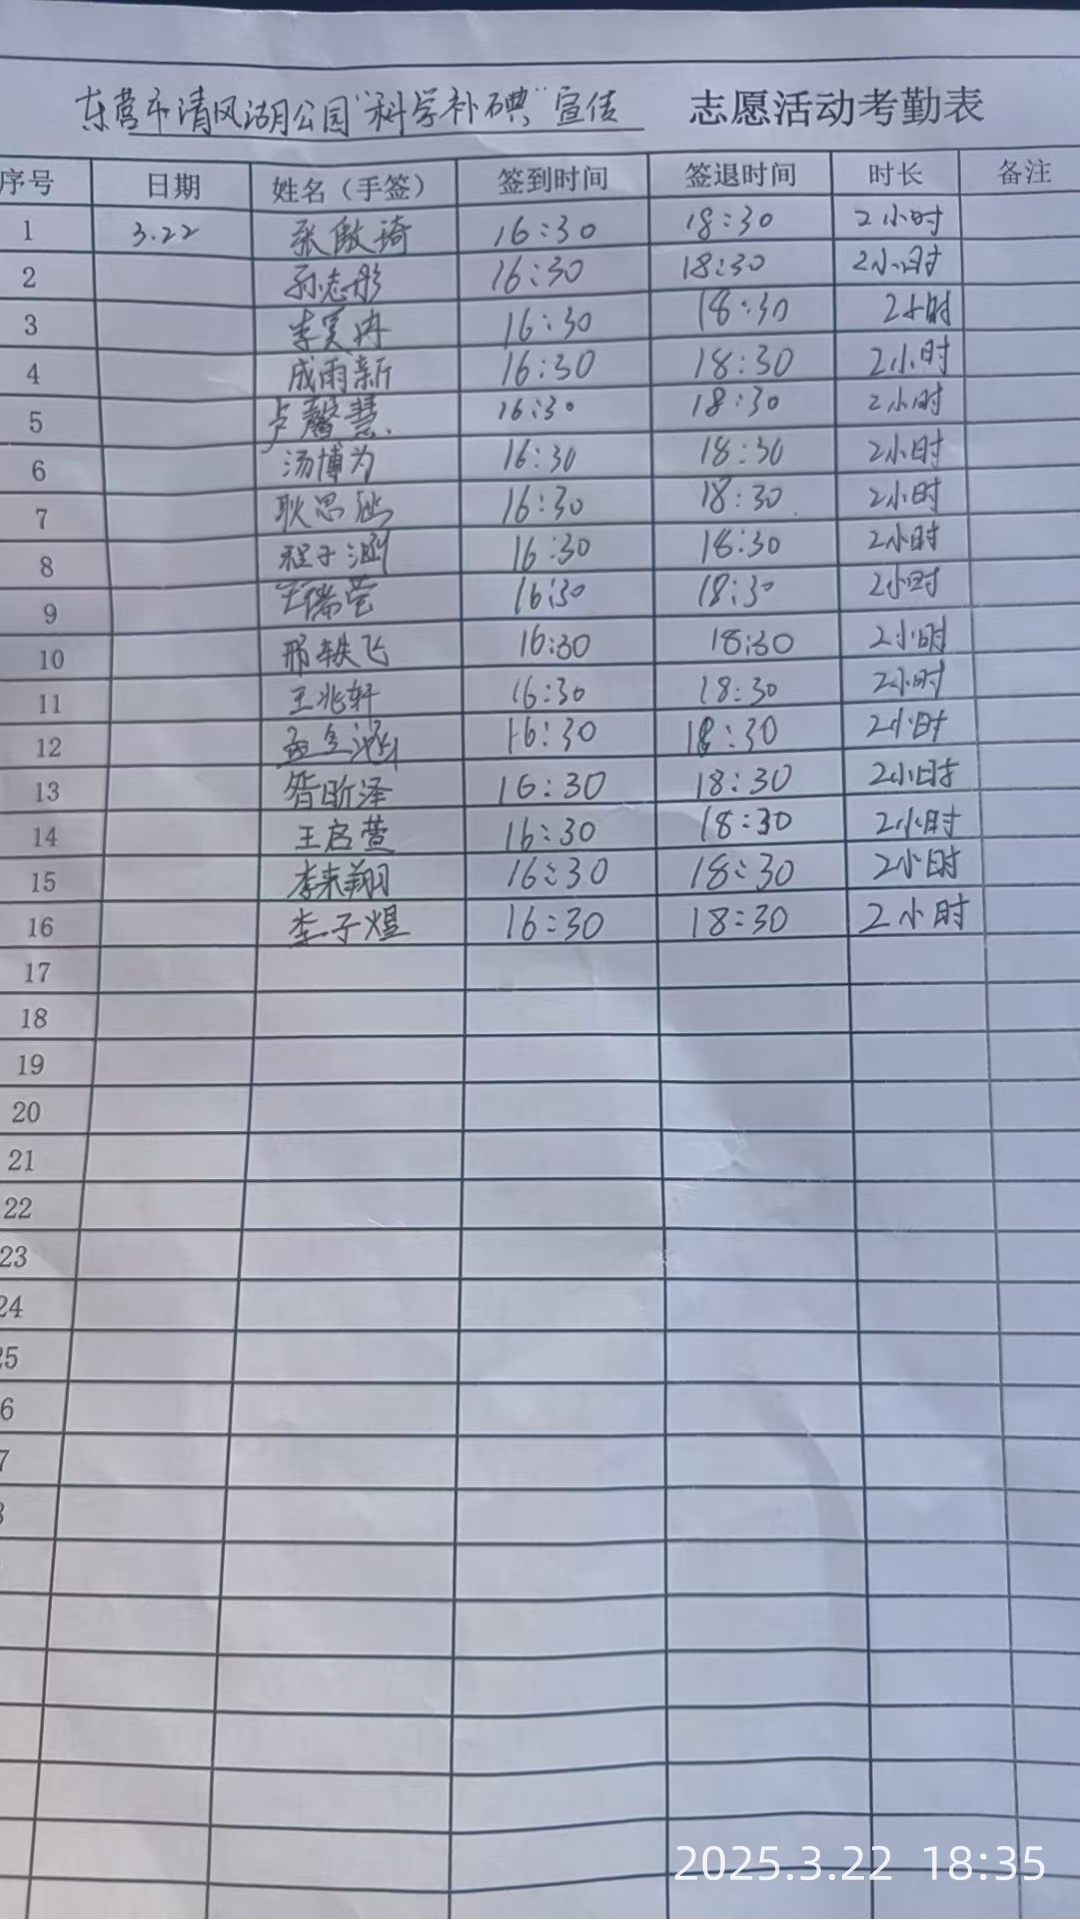 东营市清风湖公园"科学补碘"宣传 志愿活动考勤表
序号 日期 姓名（手签） 签到时间 签退时间 时长 备注
1 3.22 张傲琦 16:30 18:30 2小时
2 孙志彤 16:30 18:30 2小时
3 李冉 16:30 18:30 2小时
4 成雨新 16:30 18:30 2小时
5 卢馨慧 16:30 18:30 2小时
6 汤博为 16:30 18:30 2小时
7 耿思涵 16:30 18:30 2小时
8 程子涵 16:30 18:30 2小时
9 王瑞莹 16:30 18:30 2小时
10 邢轶飞 16:30 18:30 2小时
11 王兆轩 16:30 18:30 2小时
12 孟 涵 16:30 18:30 2小时
13 昝昕泽 16:30 18:30 2小时
14 王启萱 16:30 18:30 2小时
15 李来翔 16:30 18:30 2小时
16 李子煜 16:30 18:30 2小时
17
18
19
20
21
22
23
24
25
6
7
8
2025.3.22 18:35